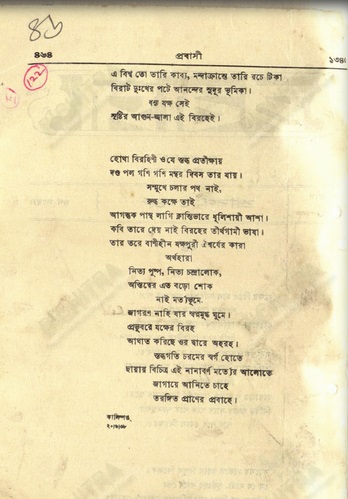 ৪৬
৪৬৪
প্রবাসী
১৩৪৫
১২২
এ বিশ্ব তো তারি কাব্য, মন্দাক্রান্তে তারি রচে টীকা
বিরাট দুঃখের পটে আনন্দের সুদূর ভূমিকা।
ধন্য যক্ষ সেই
সৃষ্টির আগুন-জ্বালা এই বিরহেই।
হোথা বিরহিণী ও যে স্তব্ধ প্রতীক্ষায়
দণ্ড পল গণি গণি মন্থর দিবস তার যায়।
সম্মুখে চলার পথ নাই,
রুদ্ধ কক্ষে তাই
আগন্তুক পান্থ লাগি ক্লান্তিভারে ধূলিশায়ী আশা।
কবি তারে দেয় নাই বিরহের তীর্থগামী ভাষা।
তার তরে বাণীহীন যক্ষপুরী ঐশ্বর্যের কারা
অর্থহারা
নিত্য পুষ্প, নিত্য চন্দ্রালোক,
অস্তিত্বের এত বড়ো শোক
নাই মর্ত্যভূমে
জাগরণ নাহি যার স্বপ্নমুগ্ধ ঘুমে।
প্রভুবরে যক্ষের বিরহ
আঘাত করিছে ওর দ্বারে অহরহ।
স্তব্ধগতি চরমের স্বর্গ হোতে
ছায়ায় বিচিত্র এই নানাবর্ণ মর্ত্যের আলোতে
জাগায়ে আনিতে চাহে
তরঙ্গিত প্রাণের প্রবাহে।
কালিম্পঙ,